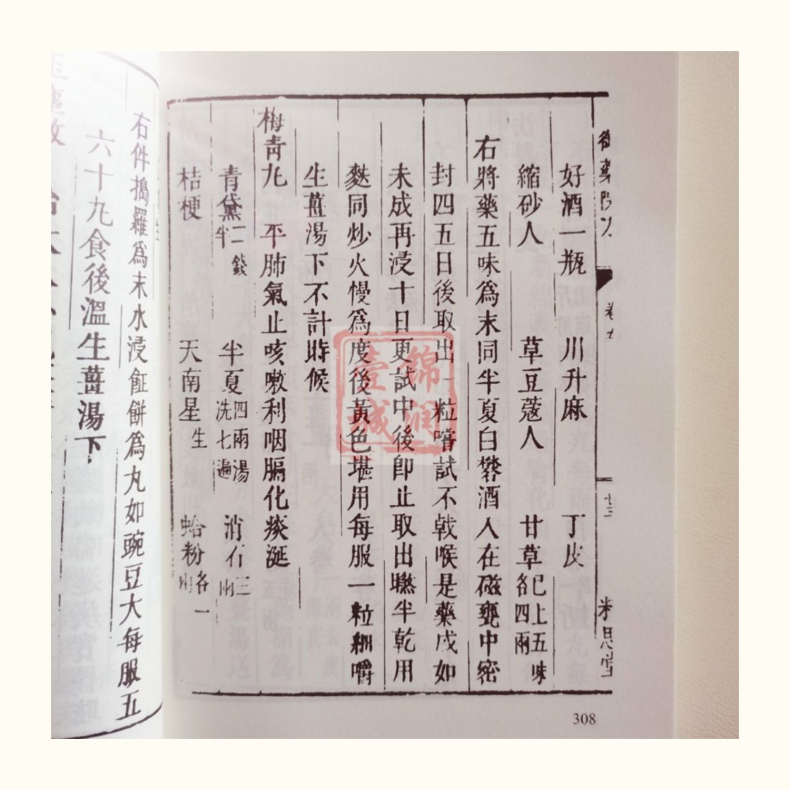 御藥院方 卷七 十三
好酒一瓶 川升麻 丁皮
縮砂人 草豆蔻人 甘草已上五味各四兩
右將藥五味爲末同半夏白礬酒入在磁甕中密
封四五日後取出一粒嚐試不戟喉是藥成如
未成再浸十日更試中後即止取出半乾用
麩同炒火慢爲度後黃色堪用每服一粒細嚼
生薑湯下不計時候
梅青丸 平肺氣止咳嗽利咽膈化痰涎
青黛二錢半 半夏四兩湯洗七遍 消石三兩
桔梗 天南星生 蛤粉各一兩
右件搗羅爲末水浸飣餅爲丸如豌豆大每服五
六十丸食後溫生薑湯下
錦潤壹城
308